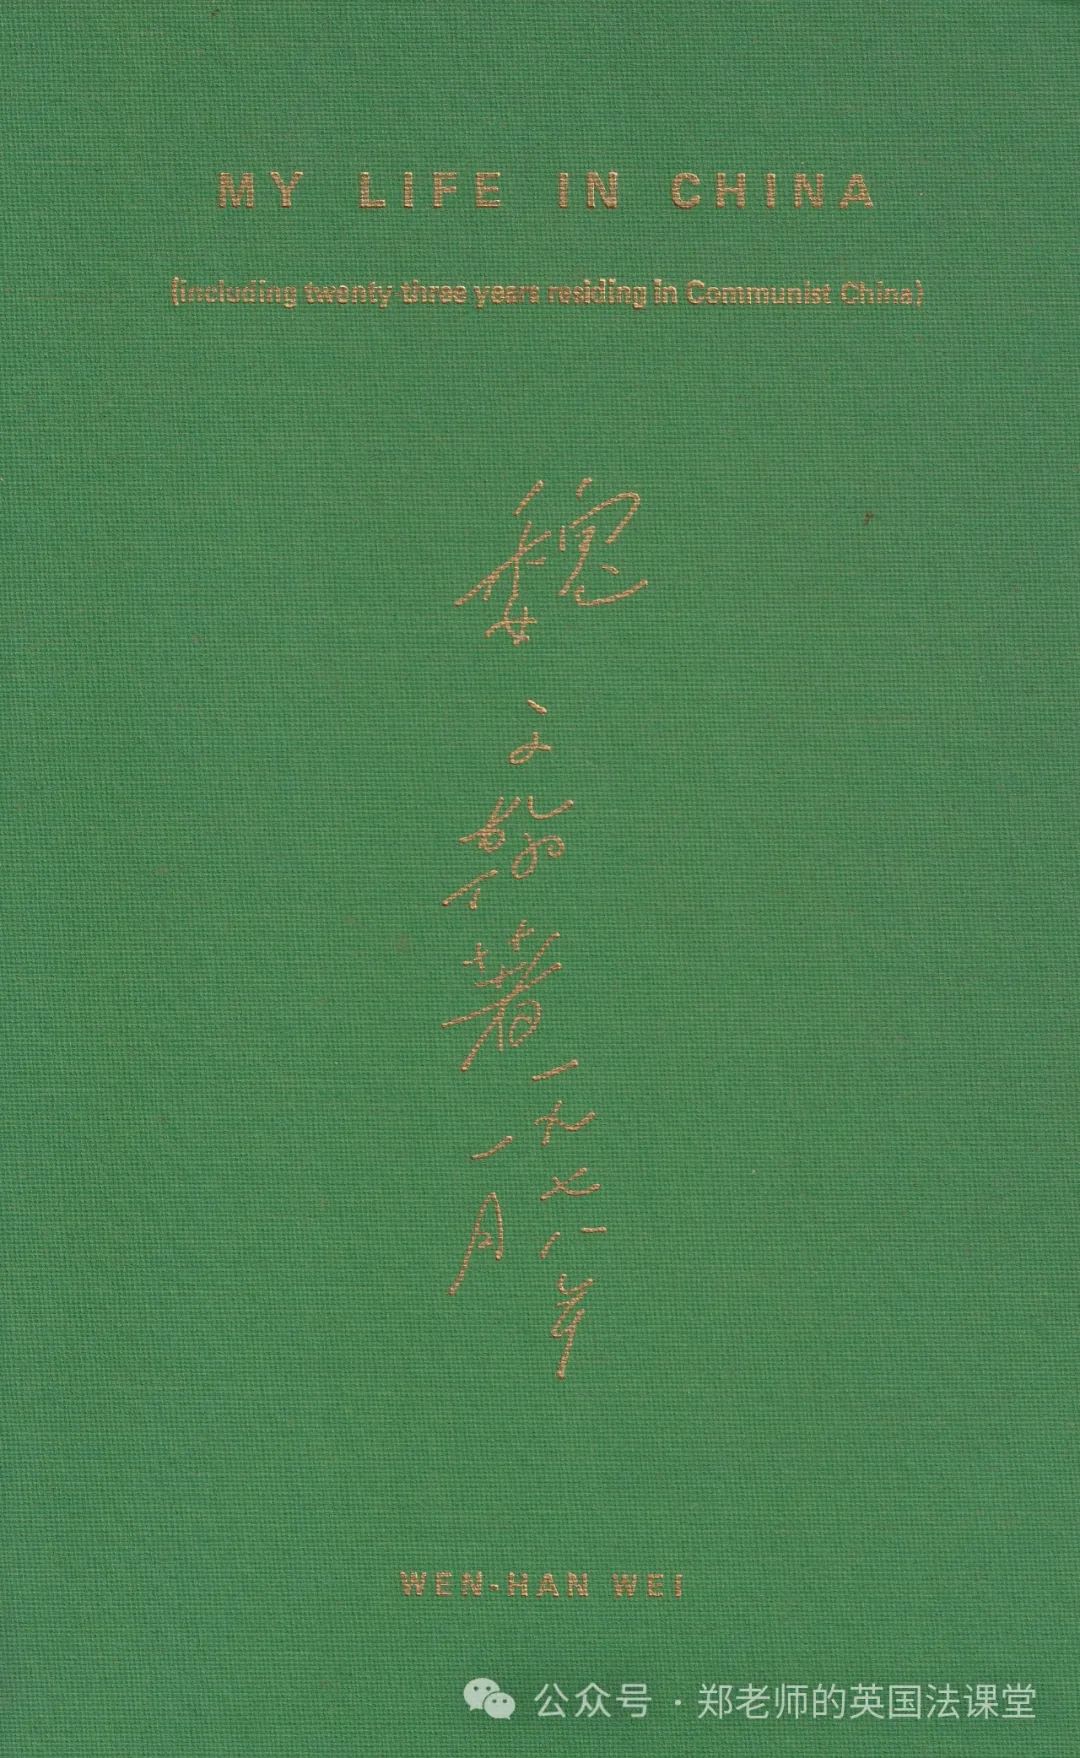 MY LIFE IN CHINA
(including twenty-three years residing in Communist China)
魏文翰著
一九七八年
一月
WEN-HAN WEI
公众号·郑老师的英国法课堂